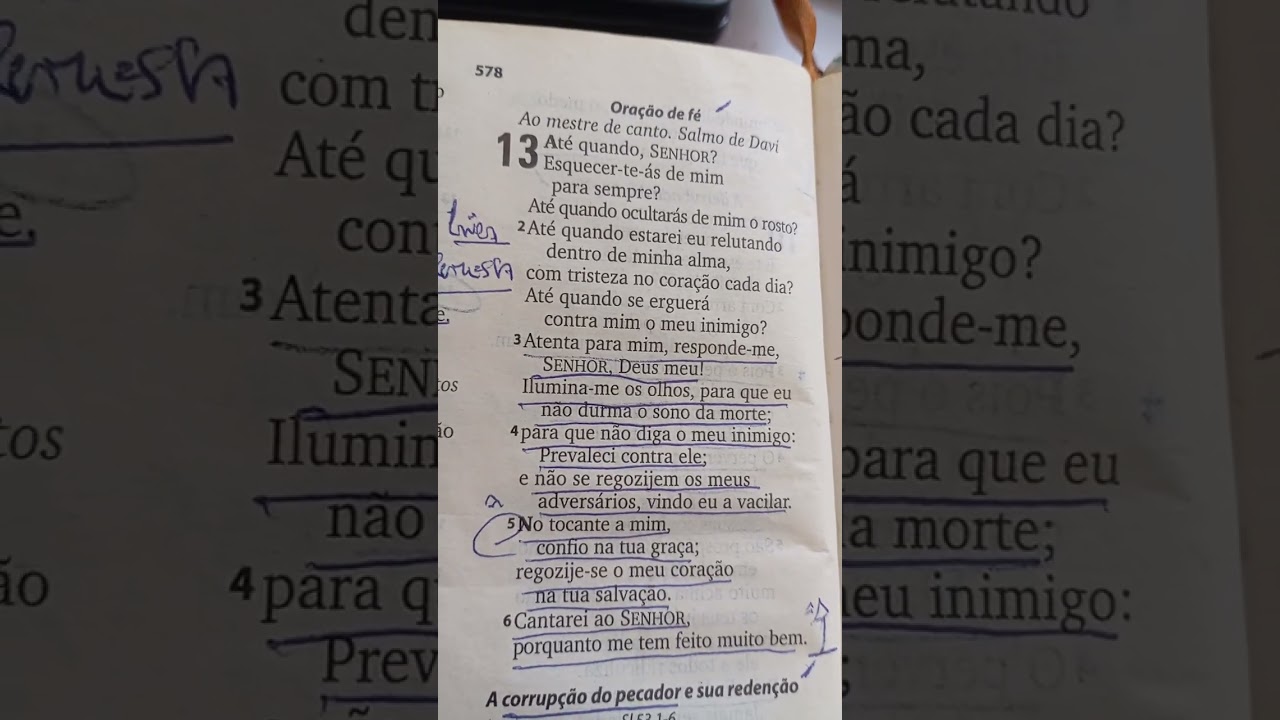 578
Oração de fé
Ao mestre de canto. Salmo de Davi
13 Até quando, SENHOR?
Esquecer-te-ás de mim
para sempre?
Até quando ocultarás de mim o rosto?
2 Até quando estarei eu relutando
dentro de minha alma,
com tristeza no coração cada dia?
Até quando se erguerá
contra mim o meu inimigo?
3 Atenta para mim, responde-me,
SENHOR, Deus meu!
Ilumina-me os olhos, para que eu
não durma o sono da morte;
4 para que não diga o meu inimigo:
Prevaleci contra ele;
e não se regozijem os meus
adversários, vindo eu a vacilar.
5 No tocante a mim,
confio na tua graça;
regozije-se o meu coração
na tua salvação.
6 Cantarei ao SENHOR,
porquanto me tem feito muito bem.
A corrupção do pecador e sua redenção